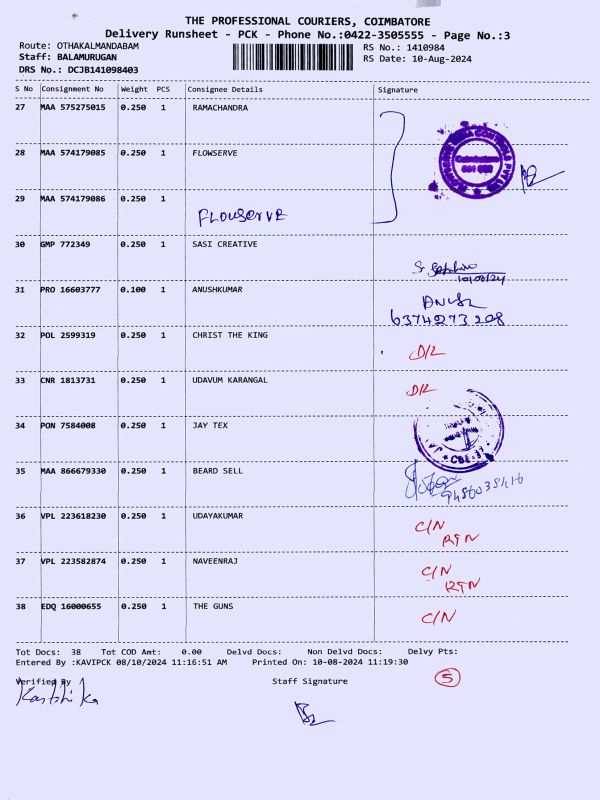 THE PROFESSIONAL COURIERS, COIMBATORE
Delivery Runsheet - PCK - Phone No.:0422-3505555 - Page No.:3
Route: OTHAKALMANDABAM RS No.: 1410984
Staff: BALAMURUGAN RS Date: 10-Aug-2024
DRS No.: DCJB141098403
S No Consignment No Weight PCS Consignee Details Signature
27 MAA 575275015 0.250 1 RAMACHANDRA
28 MAA 574179085 0.250 1 FLOWSERVE
29 MAA 574179086 0.250 1
FLOWSERVE
30 GMP 772349 0.250 1 SASI CREATIVE
10/08/24
31 PRO 16603777 0.100 1 ANUSHKUMAR
6374273208
32 POL 2599319 0.250 1 CHRIST THE KING
D/L
33 CNR 1813731 0.250 1 UDAVUM KARANGAL
D/L
34 PON 7584008 0.250 1 JAY TEX
35 MAA 866679330 0.250 1 BEARD SELL
36 VPL 223618230 0.250 1 UDAYAKUMAR
C/N
RTN
37 VPL 223582874 0.250 1 NAVEENRAJ
C/N
RTN
38 EDQ 16000655 0.250 1 THE GUNS
C/N
Tot Docs: 38 Tot COD Amt: 0.00 Delvd Docs: Non Delvd Docs: Delvy Pts:
Entered By :KAVIPCK 08/10/2024 11:16:51 AM Printed On: 10-08-2024 11:19:30
Verified By Staff Signature 5
Karthika